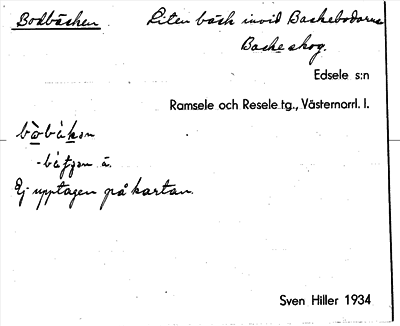 Bodbäcken Liten bäck invid Backebodarna
Backe skog.
Edsele s:n
Ramsele och Resele tg., Västernorrl. l.
Ej upptagen på kartan.
Sven Hiller 1934